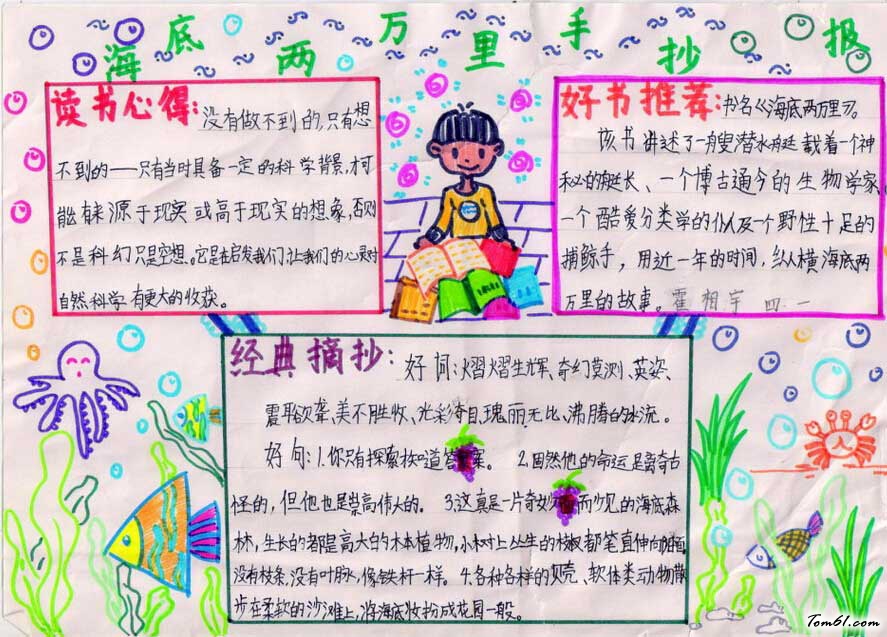 海底两万里手抄报
读书心得:没有做不到的,只有想
不到的——只有当时具备一定的科学背景,才可
能有来源于现实或高于现实的想象,否则
不是科幻只是空想。它是在启发我们,让我们的心灵对
自然科学有更大的收获。
好书推荐:书名《海底两万里》。
该书讲述了一艘潜水艇载着一个神
秘的艇长、一个博古通今的生物学家、
一个酷爱分类学的仆人及一个野性十足的
捕鲸手,用近一年的时间,纵横海底两
万里的故事。霍相宇 四.一
经典摘抄:好词:熠熠生辉、奇幻莫测、英姿、
震耳欲聋、美不胜收、光彩夺目、瑰丽无比、沸腾的冰流。
好句:1.你只有探索才知道答案。 2.固然他的命运是离奇古
怪的,但他也是崇高伟大的。 3.这真是一片奇妙而少见的海底森
林,生长的都是高大的木本植物,小树上丛生的枝桠都笔直伸向洋面,
没有枝条,没有叶脉,像铁杆一样。4.各种各样的贝壳、软体类动物散
步在柔软的沙滩上,将海底妆扮成花园一般。
Tom61.com